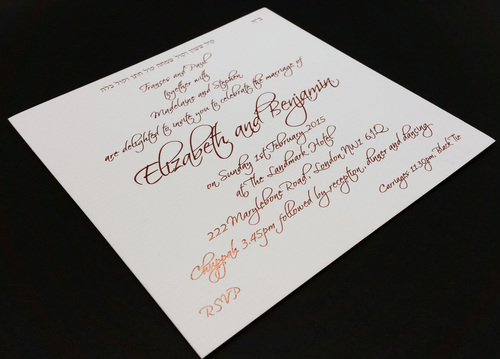 ב״ה
קול ששון וקול שמחה קול חתן וקול כלה
Frances and Paul
together with
Madelaine and Stephen
are delighted to invite you to celebrate the marriage of
Elizabeth and Benjamin
on Sunday 1st February 2015
at The Landmark Hotel
222 Marylebone Road, London NW1 6JQ
Chuppah 3.45pm followed by reception, dinner and dancing
Carriages 11.30pm, Black Tie
RSVP